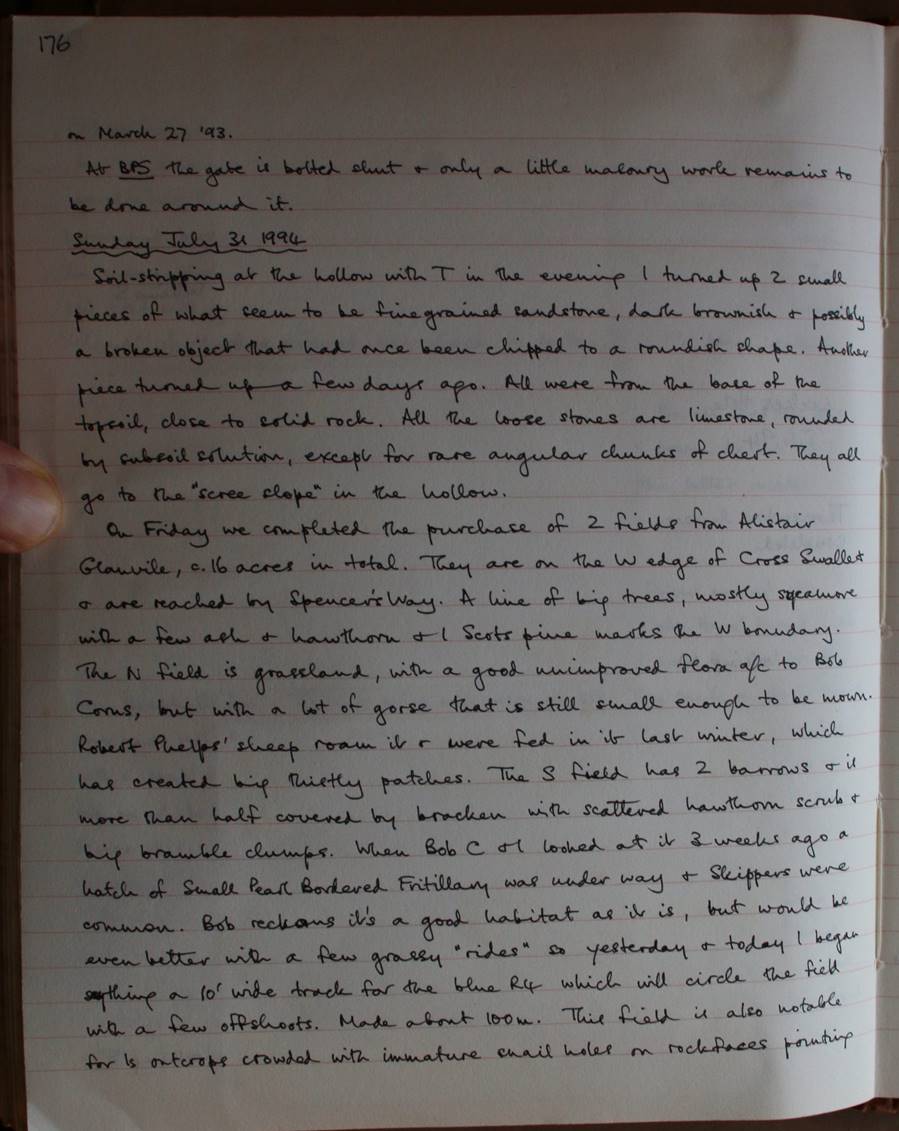 176
on March 27 '93.
At BPS the gate is bolted shut & only a little masonry work remains to
be done around it.
Sunday July 31 1994
Soil-stripping at the hollow with T in the evening I turned up 2 small
pieces of what seem to be finegrained sandstone, dark brownish & possibly
a broken object that had once been chipped to a roundish shape. Another
piece turned up a few days ago. All were from the base of the
topsoil, close to solid rock. All the loose stones are limestone, rounded
by subsoil solution, except for rare angular chunks of chert. They all
go to the "scree slope" in the hollow.
On Friday we completed the purchase of 2 fields from Alistair
Glanvile, c.16 acres in total. They are on the W edge of Cross Swallet
& are reached by Spencer's Way. A line of big trees, mostly sycamore
with a few ash & hawthorn & 1 Scots pine marks the W boundary.
The N field is grassland, with a good unimproved flora a/c to Bob
Corns, but with a lot of gorse that is still small enough to be mown.
Robert Phelps' sheep roam it & were fed in it last winter, which
has created big thistly patches. The S field has 2 barrows & is
more than half covered by bracken with scattered hawthorn scrub &
big bramble clumps. When Bob C & I looked at it 3 weeks ago a
hatch of Small Pearl Bordered Fritillary was under way & Skippers were
common. Bob reckons it's a good habitat as it is, but would be
even better with a few grassy "rides" so yesterday & today I began
scything a 10' wide track for the blue R4 which will circle the field
with a few offshoots. Made about 100m. This field is also notable
for ls outcrops crowded with immature snail holes on rockfaces pointing